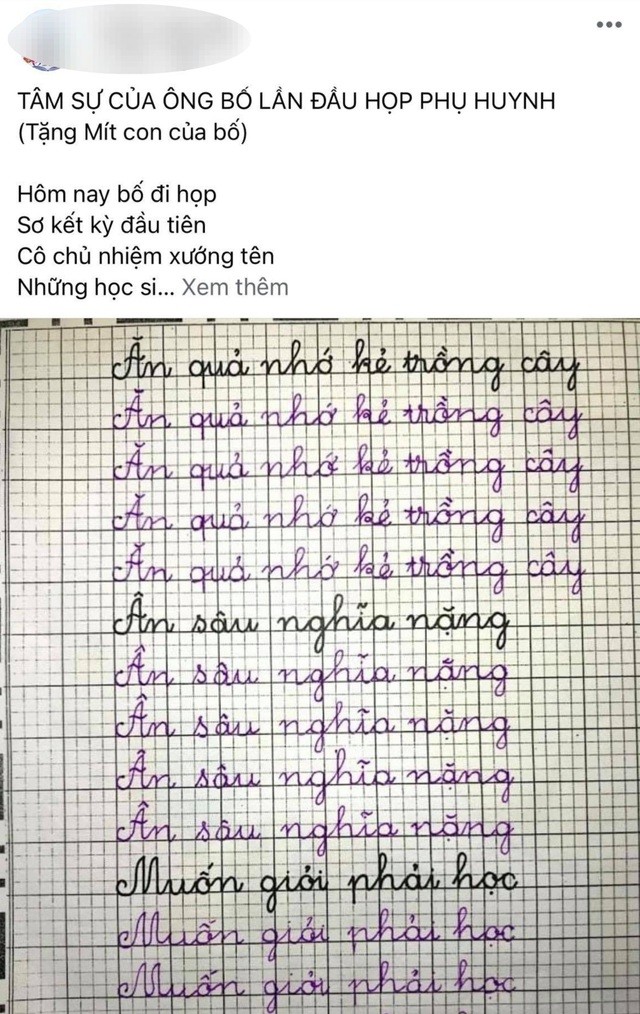 TÂM SỰ CỦA ÔNG BỐ LẦN ĐẦU HỌP PHỤ HUYNH
(Tặng Mít con của bố)
Hôm nay bố đi họp
Sơ kết kỳ đầu tiên
Cô chủ nhiệm xướng tên
Những học si... Xem thêm
Ăn quả nhớ kẻ trồng cây
Ăn quả nhớ kẻ trồng cây
Ăn quả nhớ kẻ trồng cây
Ăn quả nhớ kẻ trồng cây
Ăn quả nhớ kẻ trồng cây
Ân sâu nghĩa nặng
Ân sâu nghĩa nặng
Ân sâu nghĩa nặng
Ân sâu nghĩa nặng
Ân sâu nghĩa nặng
Muốn giỏi phải học
Muốn giỏi phải học
Muốn giỏi phải học